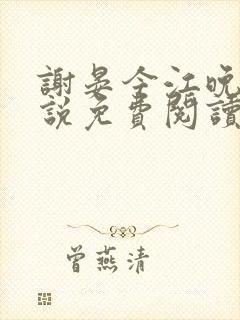 謝晏今江晚
說免費閱讀
曾燕清